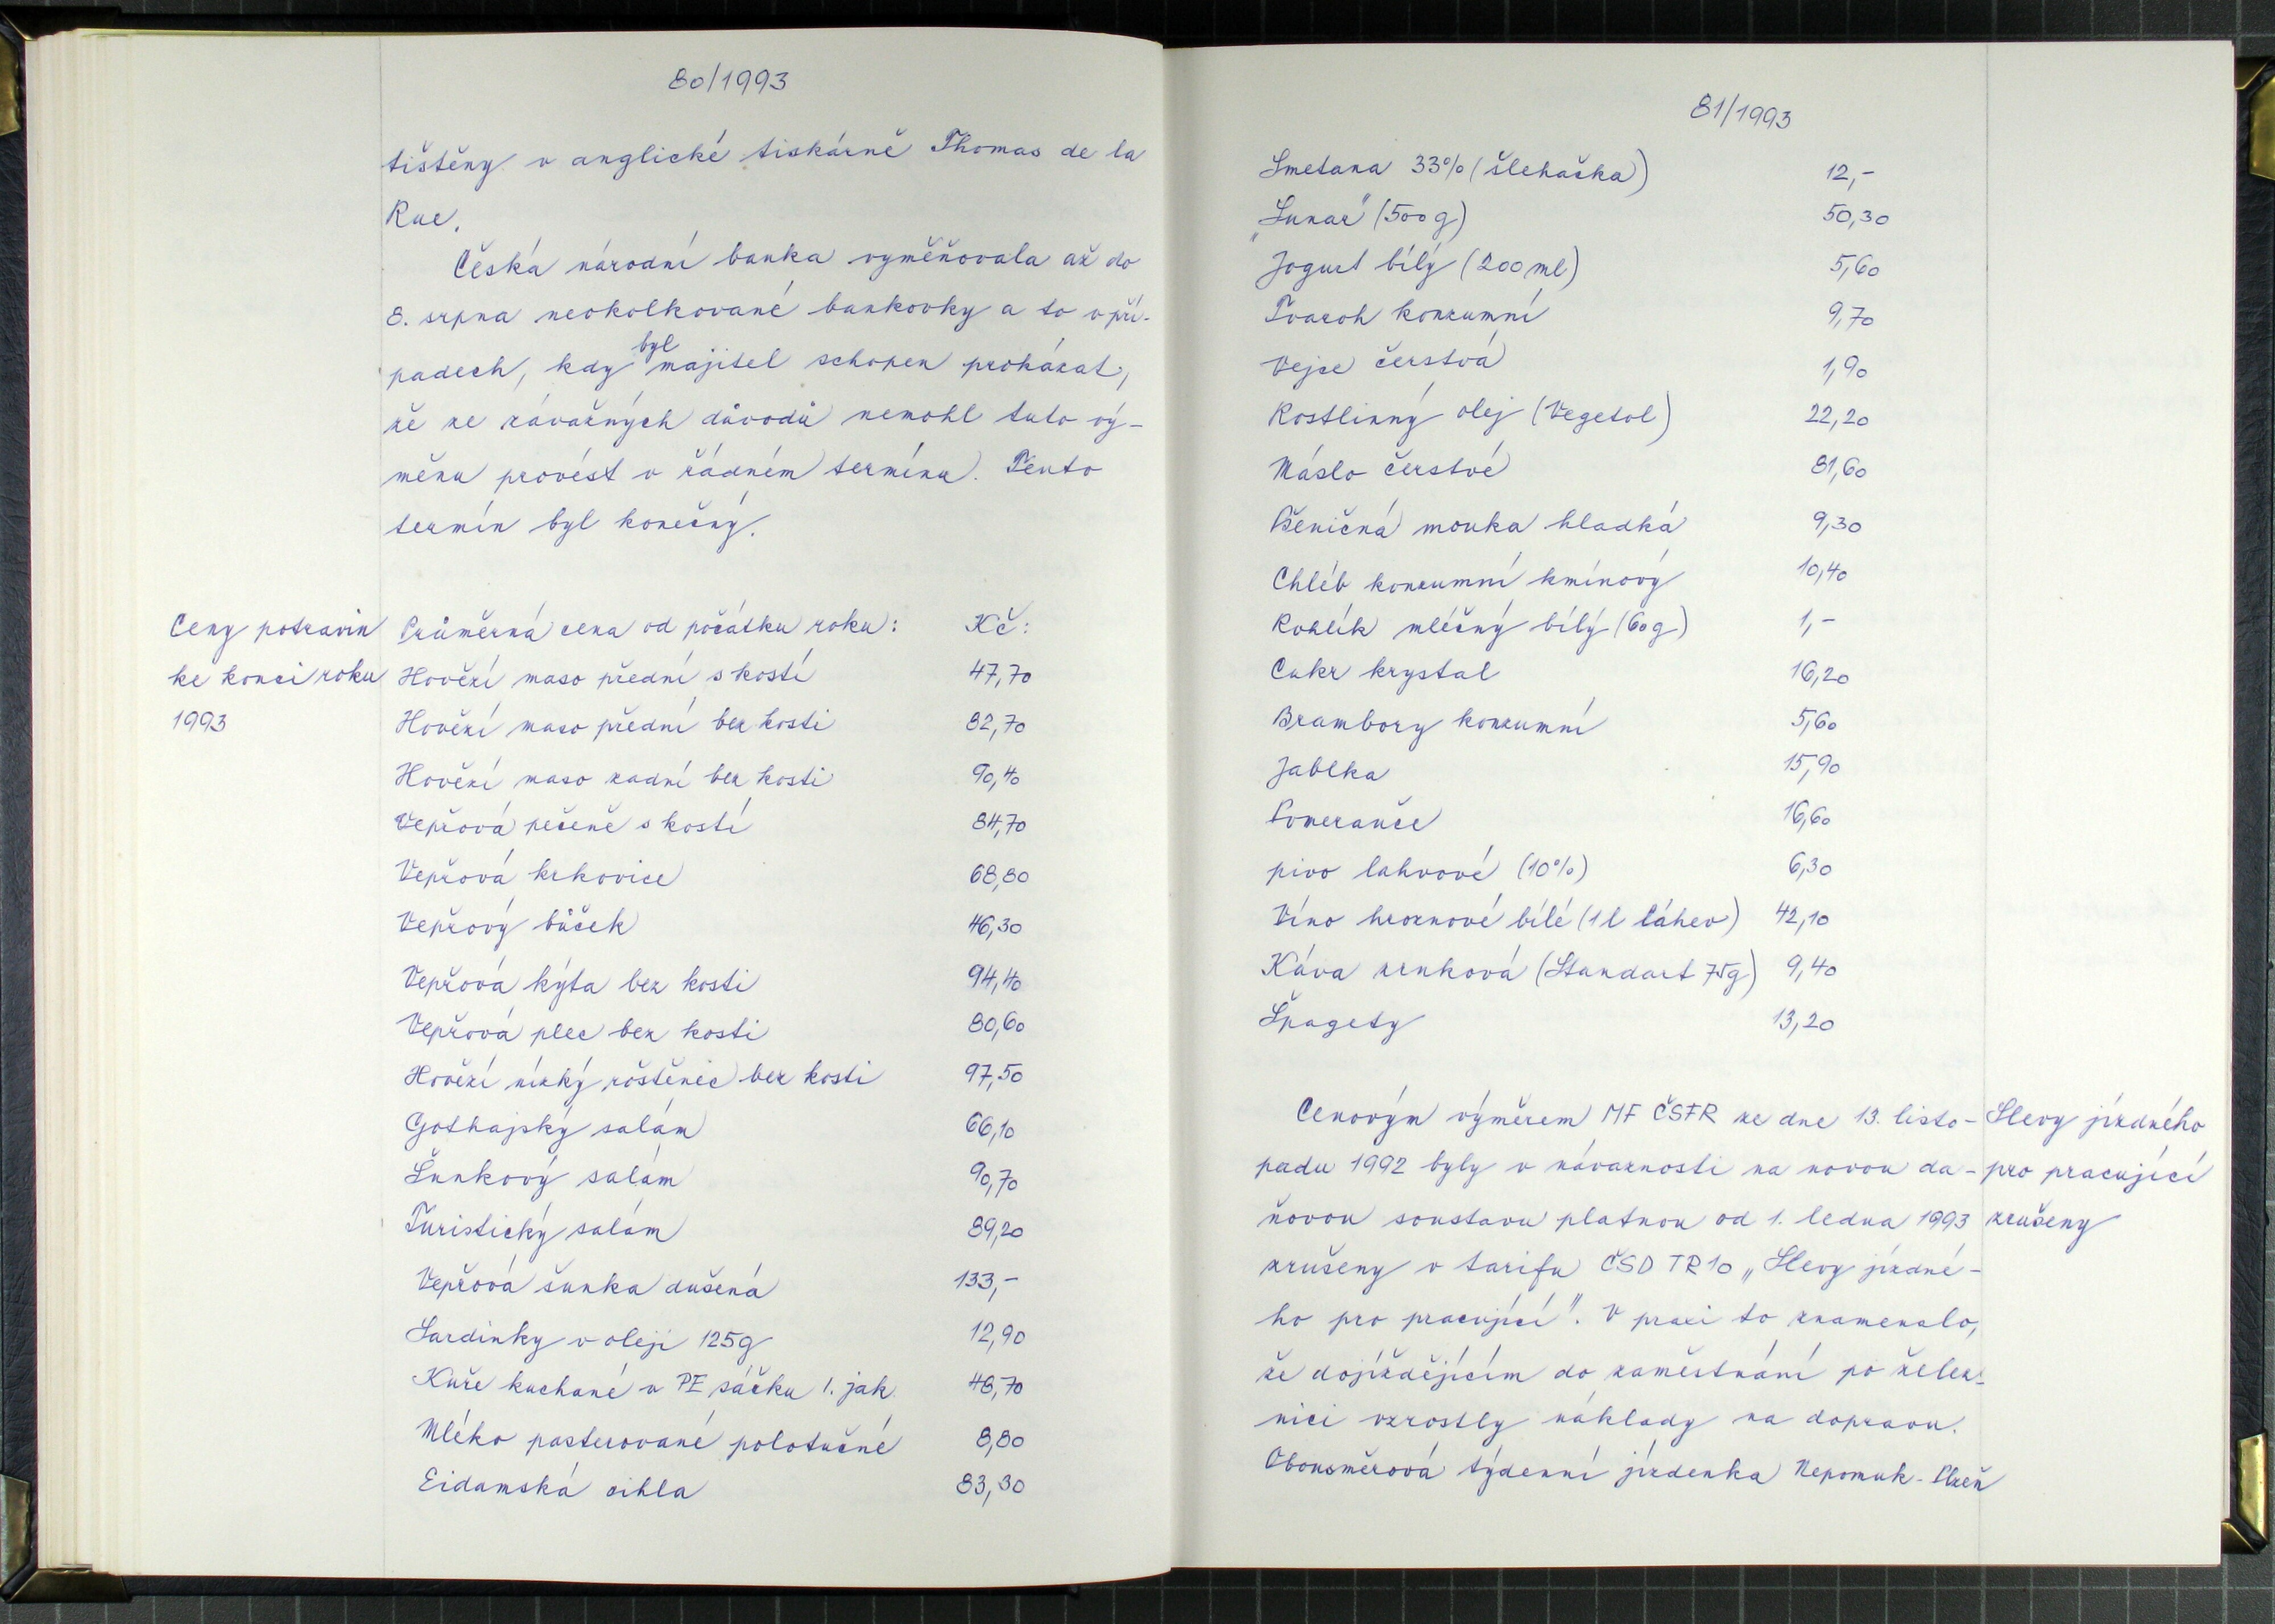 80/1993
tištěny v anglické tiskárně Thomas de la
Rue.
Česká národní banka vyměňovala až do
8. srpna neokolkované bankovky a to v pří-
padech, kdy byl majitel schopen prokázat,
že ze závažných důvodů nemohl tuto vý-
měnu provést v řádném termínu. Tento
termín byl konečný.
Ceny potravin
ke konci roku
1993
Průměrná cena od počátku roku: Kč:
Hovězí maso přední s kostí 47,70
Hovězí maso přední bez kosti 82,70
Hovězí maso zadní bez kosti 90,40
Vepřová pečeně s kostí 84,70
Vepřová krkovice 68,80
Vepřový bůček 46,30
Vepřová kýta bez kosti 94,40
Vepřová plec bez kosti 80,60
Hovězí nízký roštěnec bez kosti 97,50
Gothajský salám 66,10
Šunkový salám 90,70
Turistický salám 89,20
Vepřová šunka dušená 133,-
Sardinky v oleji 125g 12,90
Kuře kuchané v PE sáčku 1. jak 48,70
Mléko pasterované polotučné 8,80
Eidamská cihla 83,30
81/1993
Smetana 33% (šlehačka) 12,-
„Lunar" (500g) 50,30
Jogurt bílý (200 ml) 5,60
Tvaroh konzumní 9,70
Vejce čerstvá 1,90
Rostlinný olej (Vegetol) 22,20
Máslo čerstvé 81,60
Pšeničná mouka hladká 9,30
Chléb konzumní kmínový 10,40
Rohlík mléčný bílý (60g) 1,-
Cukr krystal 16,20
Brambory konzumní 5,60
Jablka 15,90
Pomeranče 16,60
pivo lahvové (10%) 6,30
Víno hroznové bílé (1l láhev) 42,10
Káva zrnková (Standart 75g) 9,40
Špagety 13,20
Cenovým výměrem MF ČSFR ze dne 13. listo-
padu 1992 byly v návaznosti na novou da-
ňovou soustavu platnou od 1. ledna 1993
zrušeny v tarifu ČSD TR10 „Slevy jízdné-
ho pro pracující". V praxi to znamenalo,
že dojíždějícím do zaměstnání po želez-
nici vzrostly náklady na dopravu.
Obousměrová týdenní jízdenka Nepomuk - Plzeň
Slevy jízdného
pro pracující
zrušeny